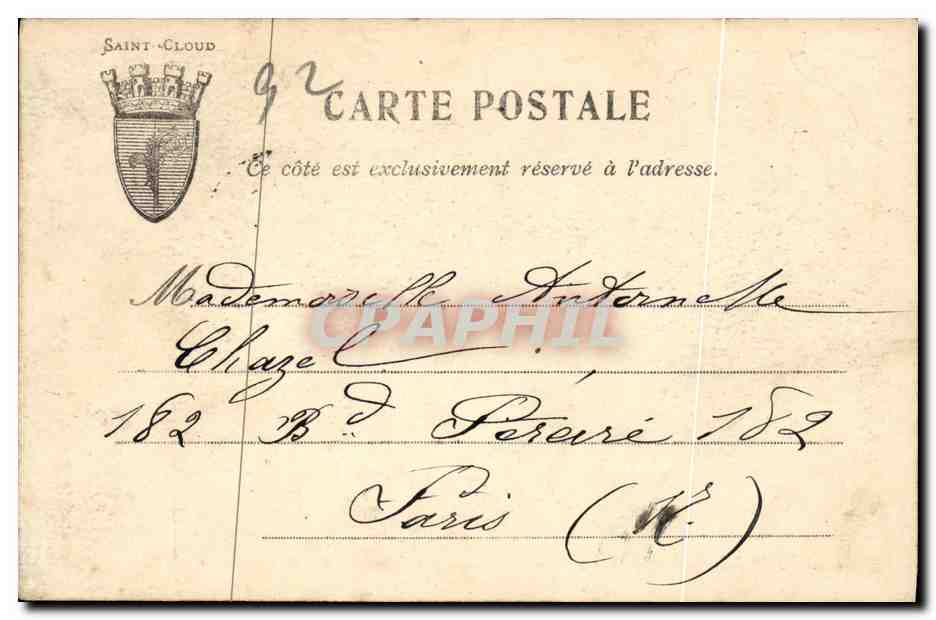 SAINT-CLOUD
92
CARTE POSTALE
Ce côté est exclusivement réservé à l'adresse.
Mademoiselle Antoinette
CPAPHIL
Chazel,
182 Bd Péreire 182
Paris